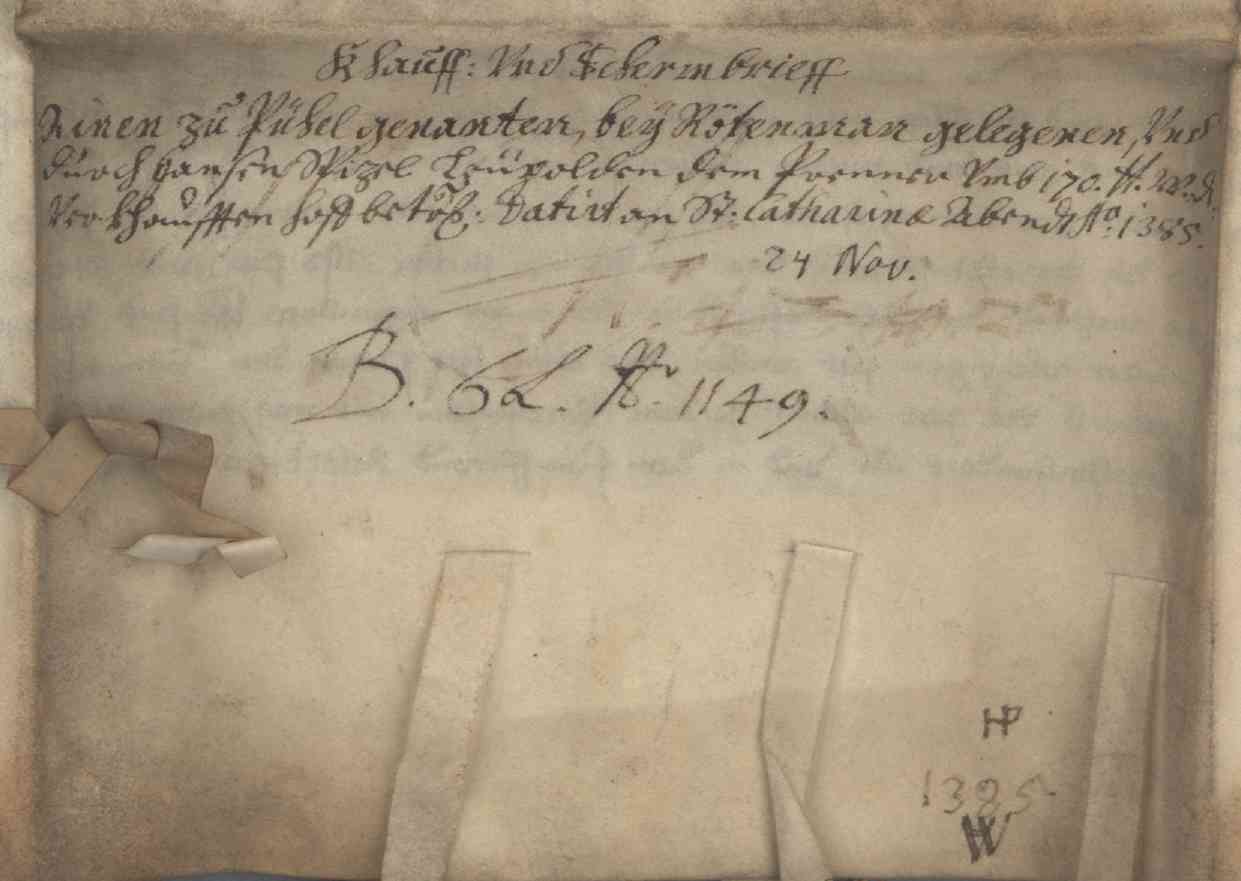 Khauff: Vnd Schermbrieff
Ainen zu Pühel genanten, bey Rötenman gelegenen, Vnd
durch Hansen Spizel Leüpolden dem Prenner Vmb 170. tt. W. d.
Verkhaufften hoff betŏf: Datirt an St: Catharinæ Abendt Aº. 1385.
24 Nov.
B. 62. Nr. 1149.
HP
1385
W